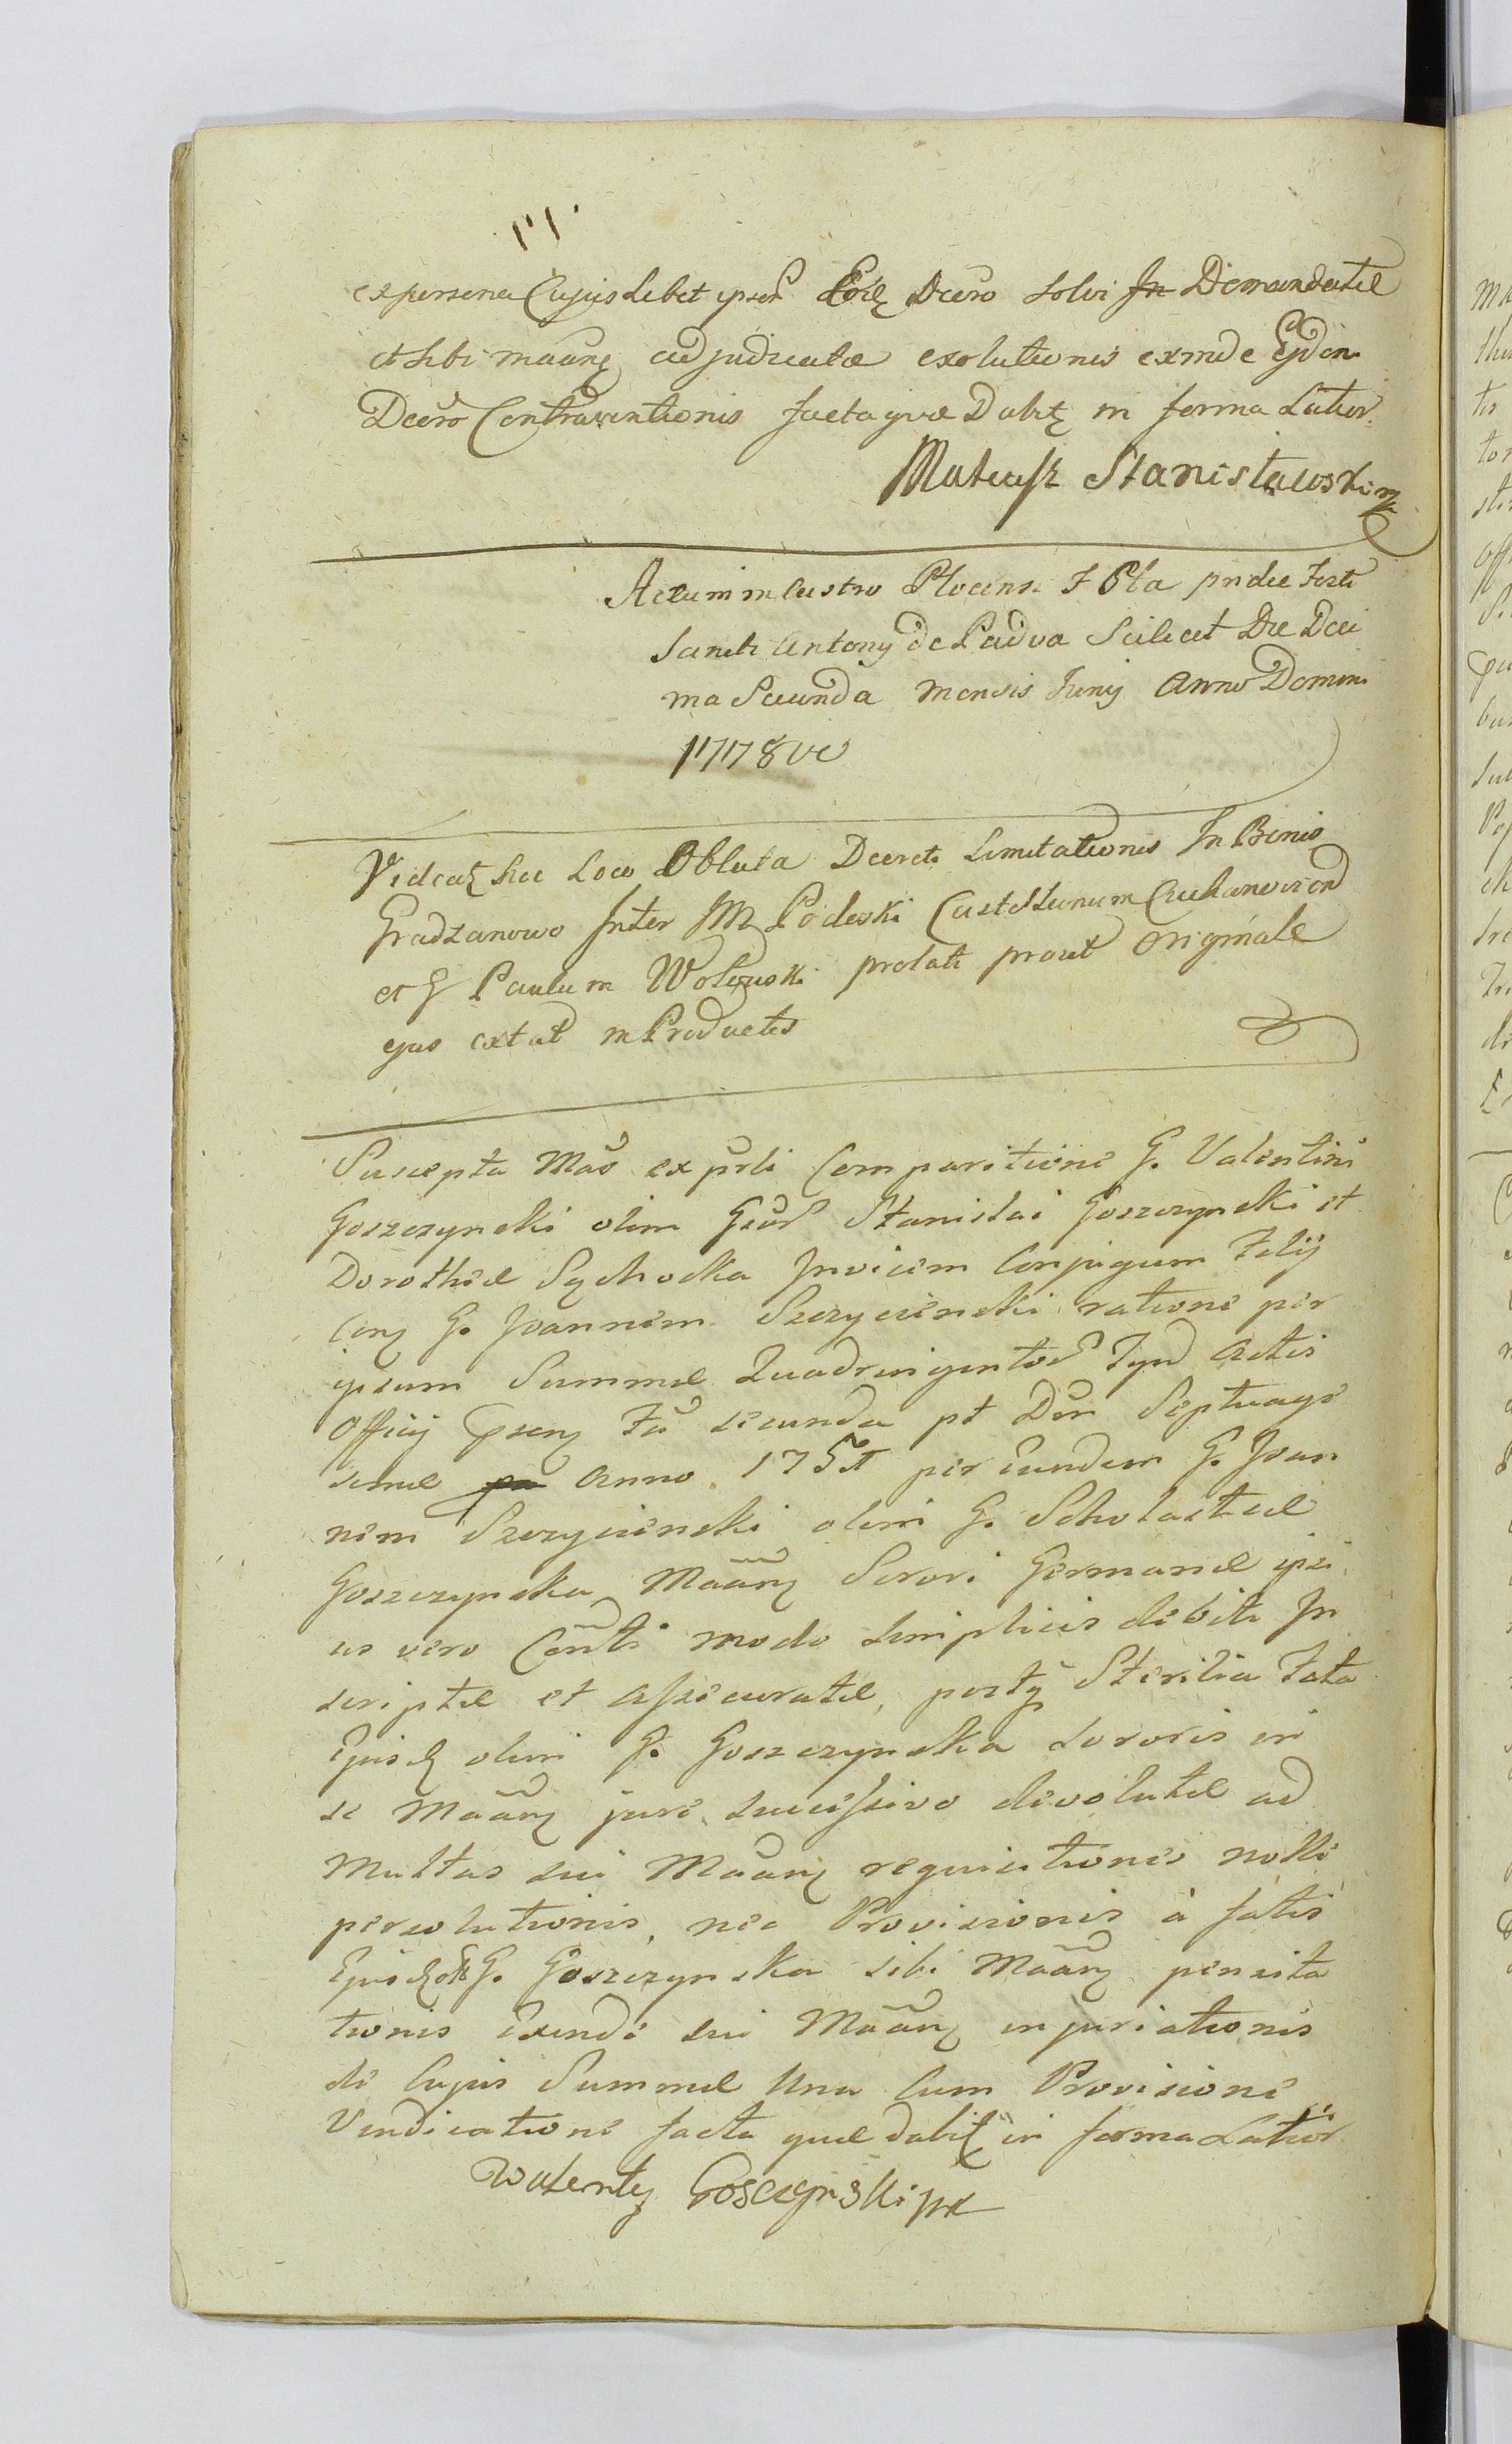 ex persona Cujus Libet ipsor Eoõq Dcero Solvi In Demandatæ
et sibi maãnq adjudicatæ exolutionis exinde Ejdem
Dcero Contraventionis facta qvæ Dabitq in forma Latior.
Mateusz Stanisławski mp
Actum in Castro Plocensi F Vta pridie Festi
Sancti Antonij de Padva Scilicet Die Deci
ma Secunda Mensis Junij Anno Domini
1778vo
Videatq hic Loco Oblata Decreti Limitationis In Bonis
Gradzanowo Inter M Podoski Castellanum Ciechanoviens
et G Paulum Wolęnski prolati prout Originale
ejus extat in Productis
Suscepta Mãõ ex pñli Comparitione G. Valentini
Goszczynski olim Gsor Stanislai Goszczynski et
Dorotheæ Sychocka Invicem Conjugum Filij
Conq G. Joannem Szczycienski ratione per
ipsum Summæ Quadringentor Tynf Actis
Officij Psenq Fa secunda pt Dm Septuage
simæ Anno 175 per Eundem G. Joan
nem Szczycienski olim G. Scholasticæ
Goszczynska Maãnq Sorori Germanæ ipsi
us vero Conti modo simplicis debiti In
scriptæ et Assecuratæ, postq Sterilia Fata
Ejusdq olim G. Goszczynska Sororis in
se Maãnq jure successivo devolutæ ad
Multas sui Maãnq requisitiones nolle
persolutionis, nec Provisionis à fatis
Ejusdq ol G. Goszczynska sibi Maãnq pensita
tionis Exinde sui Maãnq injuriationis
de Cujus Summæ Una Cum Provisione
Vendicatione facta quæ dabitq in forma Latior
Walenty Goszczynski mp